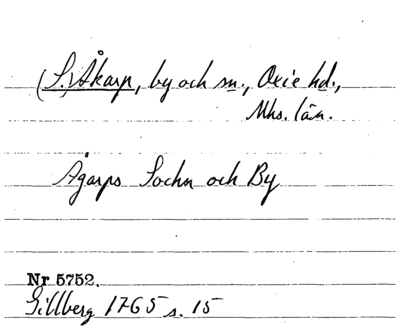 (S.) Åkarp, by och sn., Oxie hd.,
Mhs. län.
Ågarps Sochn och By
Nr 5752.
Gillberg 1765 s. 15